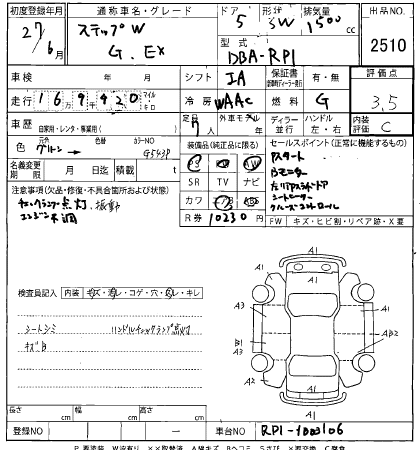 初度登録年月 通称車名・グレード ドア 形状 排気量 出品NO.
27/6月 ステップW G.Ex 5 SW 1500 cc 2510
型式 DBA-RP1
車検 年 月 シフト IA 保証書 有・無 評価点
走行 169920 マイル キロ 冷房 WAAC 燃料 G 3.5
車歴 自家用・レンタ・事業用( ) 定員 7人 外車モデル 年 ディーラー 並行 ハンドル 左・右 内装評価 C
色 元色 グリーン 色替 カラーNO G543P
装備品(純正品に限る) セールスポイント(正常に機能するもの)
名義変更期限 月 日 積載 t
PS AW
SR TV ナビ
カワ エアB
R券 10230 円
Pスタート
Bモニター
シートヒーター
クルーズコントロール
注意事項(欠品・修復・不具合箇所および状態)
チェックランプ点灯、振動
エンジン不調
FW キズ・ヒビ割・リペア跡・X要
検査員記入 内装 キズ・汚レ・コゲ・穴・スレ・キレ
シートシミ
キズB
A1
A1 A1
A3 A3
B1 A3 AB2
A2 A1
A1
長さ cm 幅 cm 高さ cm
登録NO ー 車台NO RP1-1003106